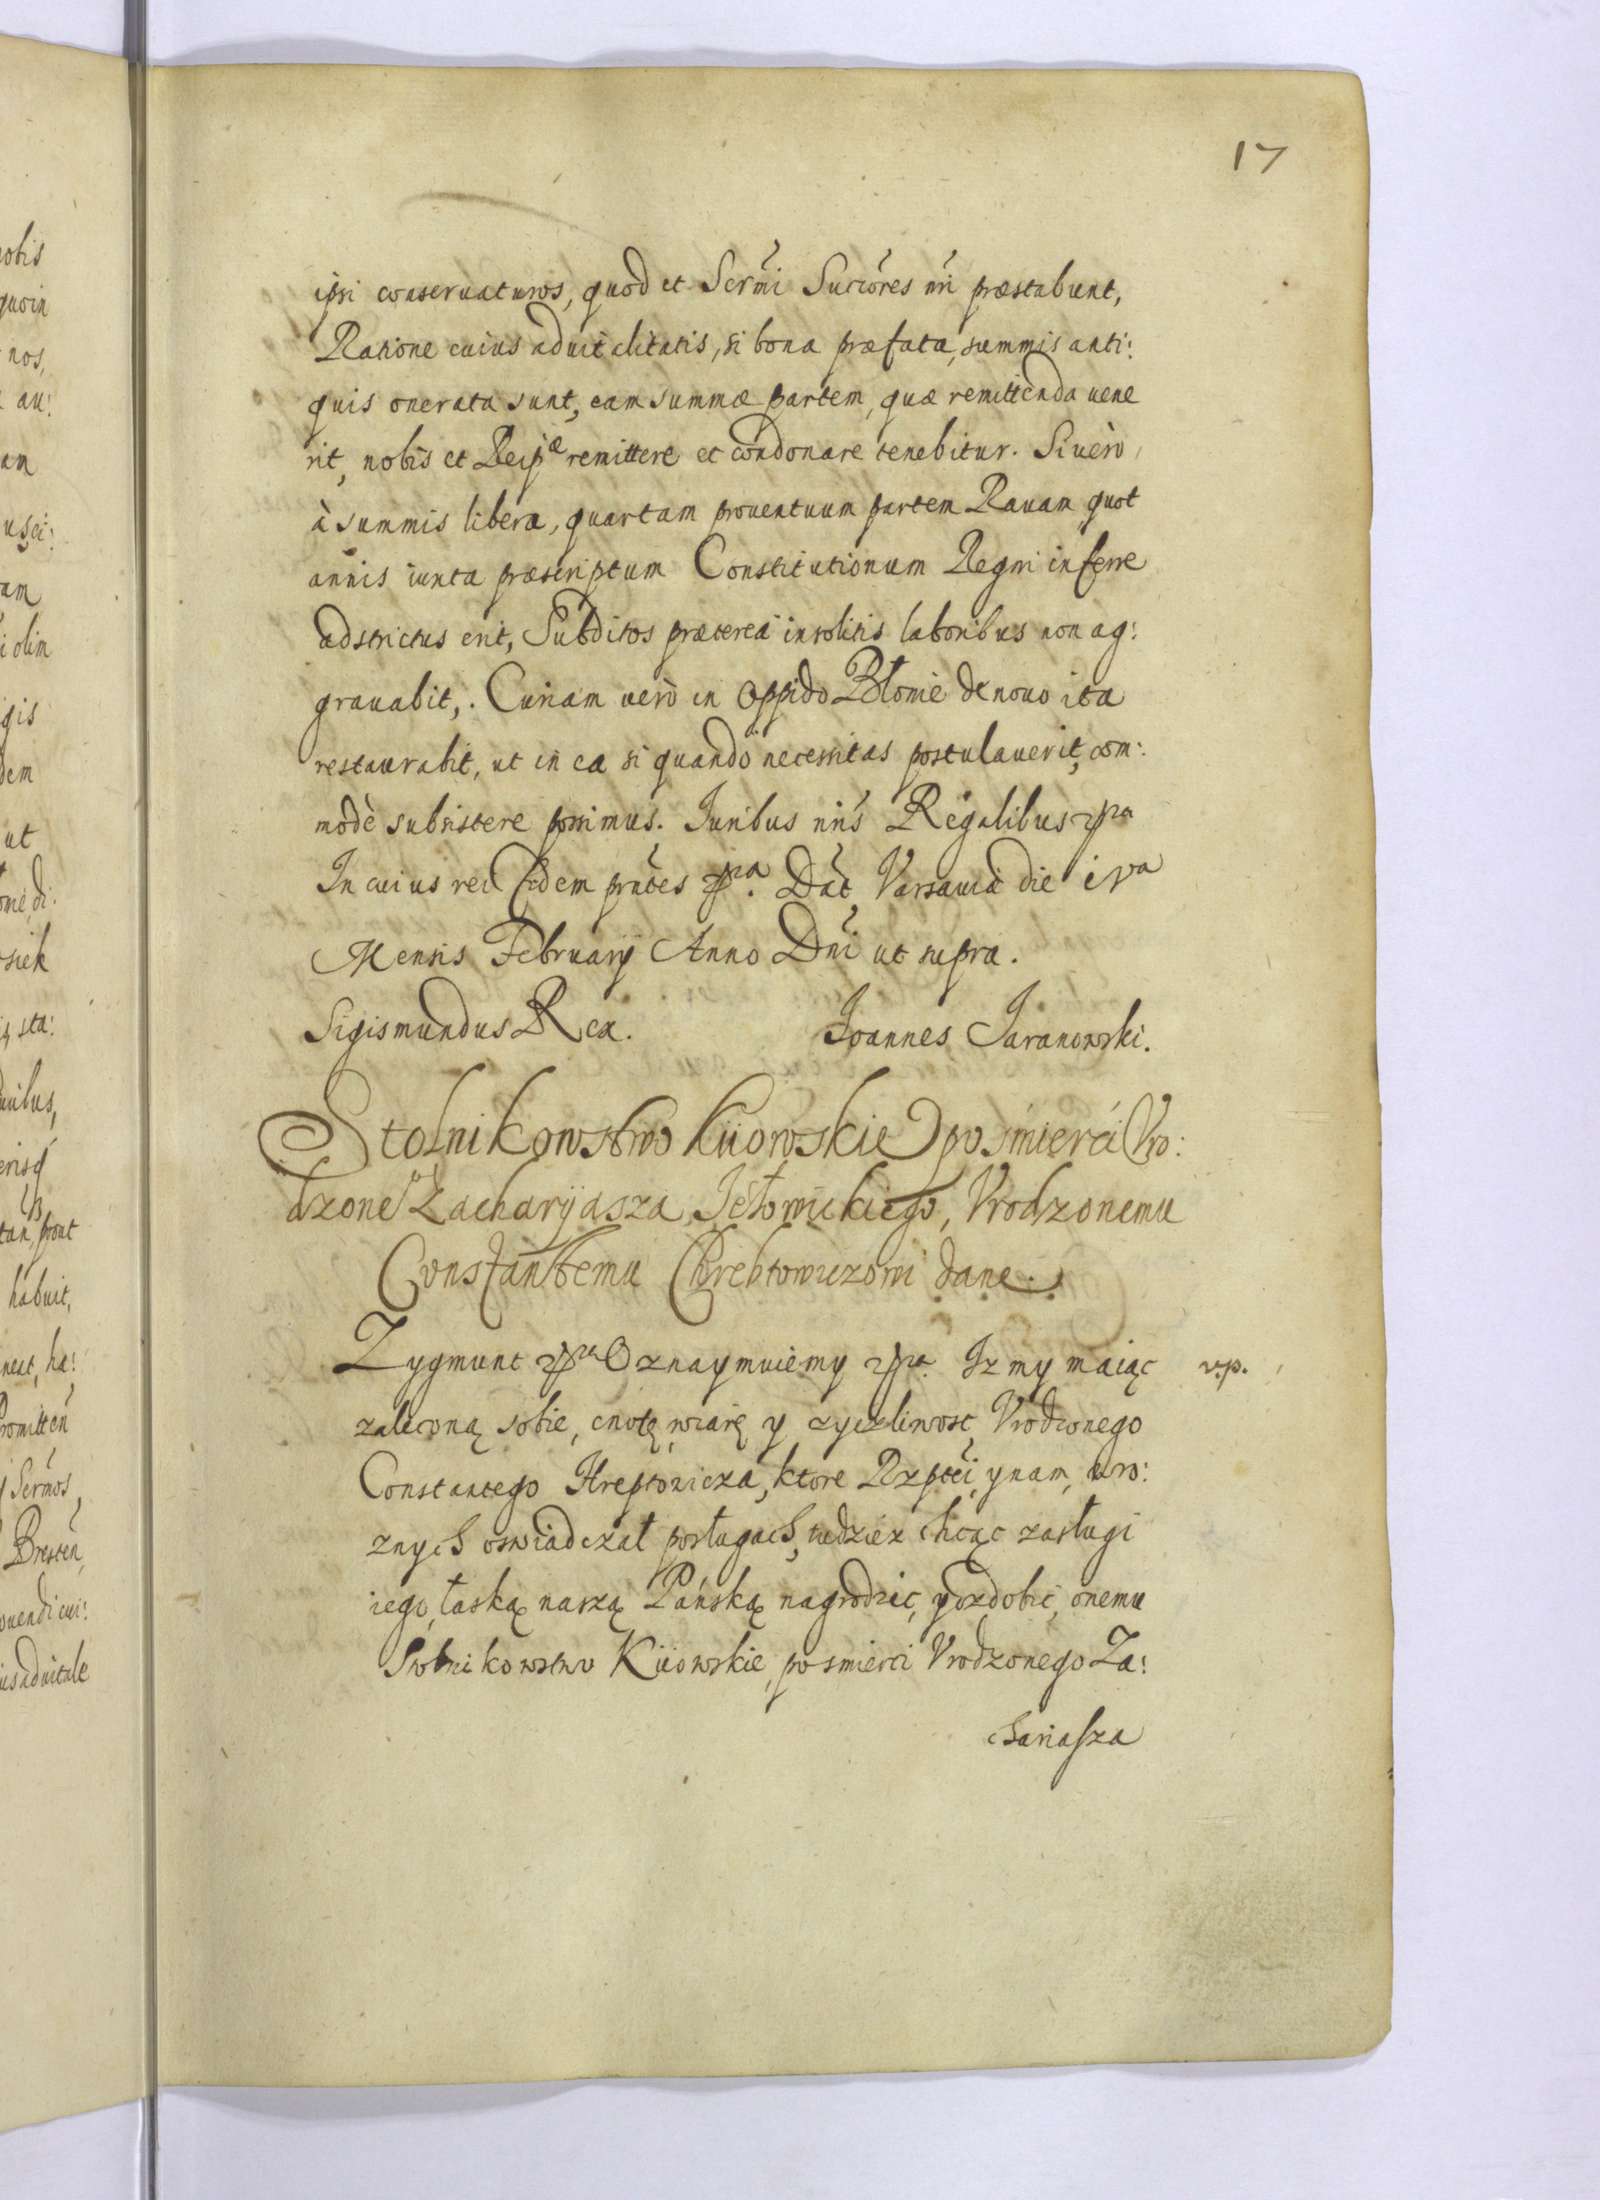 17
ipsi conseruaturos, quod et Serm̃i Succ̃ores nr̃i præstabunt,
Ratione cuius aduitalitatis, si bona præfata, summis anti:
quis onerata sunt, eam summæ partem, quæ remittenda uene
rit, nobis et Reipæ remittere et condonare tenebitur. Si uerò
à summis libera, quartam prouentuum partem Rauam quot
annis iuxta præscriptum Constitutionum Regni inferre
adstrictus erit, Subditos præterea insolitis laboribus non ag:
grauabit,. Curiam uerò in Oppido Błonie de nouo ita
restaurabit, ut in ea si quando necessitas postulauerit, com:
modè subsistere possimus. Iuribus nr̃is Regalibus
In cuius rei fidem pnt̃es Dat̃ Varsauiæ die
Mensis February Anno Dñi ut supra.
Sigismundus Rex. Ioannes Jaranowski.
Stolnikowstwo Kiiowskie po śmierci Vro:
dzoneo Zacharyasza Jełowickiego, Vrodzonemu
Constantemu Chrebtowiczowi dane.
Zygmunt Oznaymuiemy Iz my maiąc
v.p.
zaleconą sobie, cnotę, wiarę y zyczliwosc, Vrodzonego
Constantego Hreptowicza, ktore Rzptei̇, y nam, w ro:
znych oswiadczał posługach, tudziez chcąc zasługi
iego, łaską naszą Pańską nagrodzic, y ozdobic, onemu
Stolnikowstwo Kiiowskie, po smierci Vrodzonego Za:
chariasza